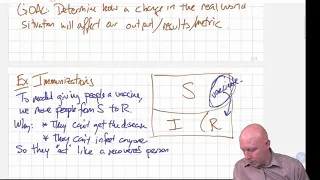 GOAL: Determine how a change in the real world
situation will affect our output/results/metric
Ex Immunizations
To model giving people a vaccine,
we move people from S to R.
Why: * They can't get the disease
* They can't infect anyone
So they "act" like a recovered person
S vaccinate
I R